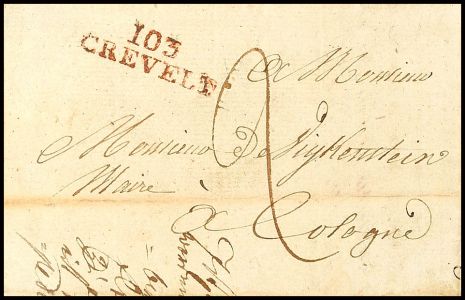 103
CREVELT
a Monsieur
Monsieur De Wykenstein
Maire
a Cologne
2